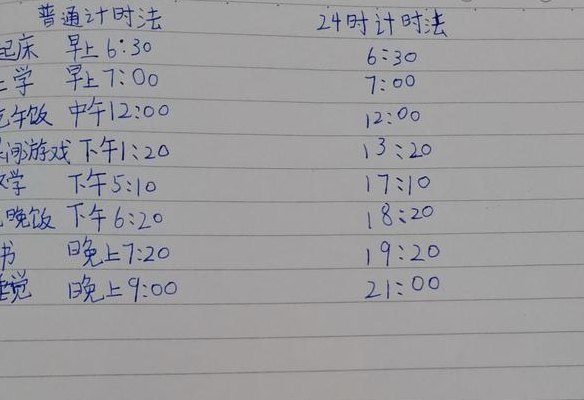 普通计时法 24时计时法
起床 早上6:30 6:30
上学 早上7:00 7:00
吃午饭 中午12:00 12:00
游戏 下午1:20 13:20
学 下午5:10 17:10
晚饭 下午6:20 18:20
书 晚上7:20 19:20
睡觉 晚上9:00 21:00